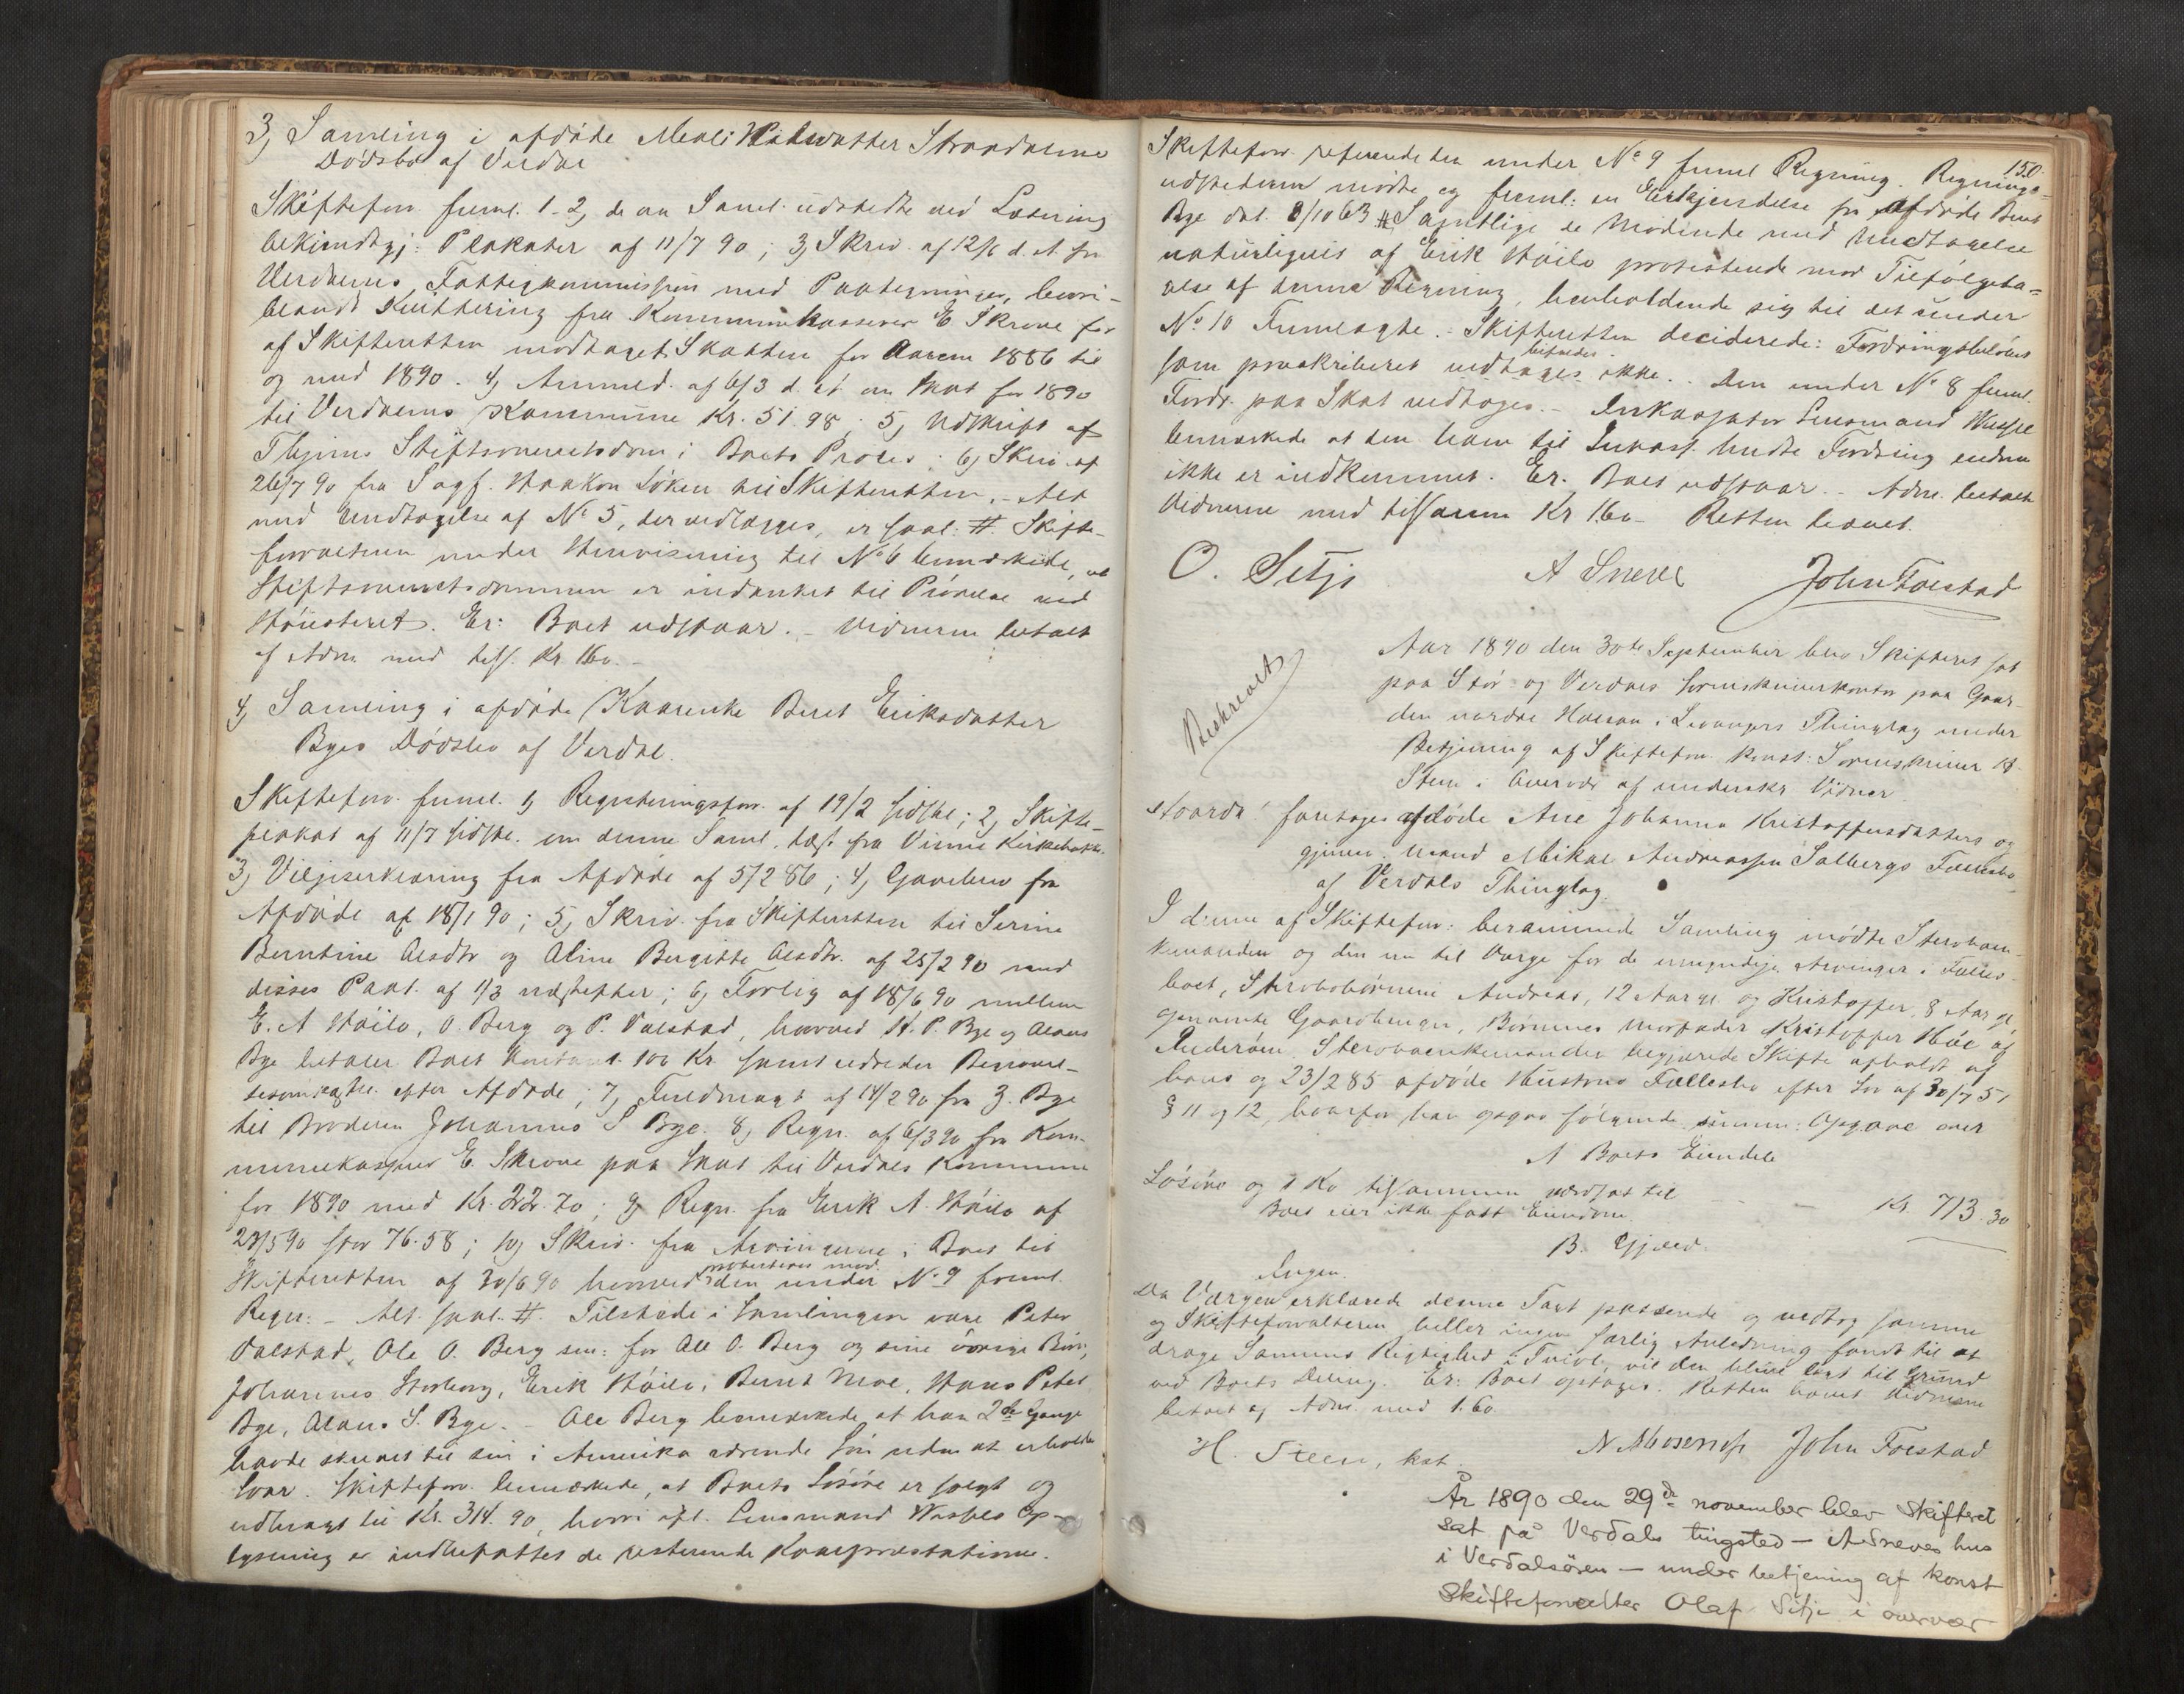 3, Samling i afdøde Meali Strandernes
Dødsbo af Verdal
Skifteforv. freml. 1-2, de om Saml. udstedte ved Læsning
bekjendtgj: Plakater af 11/7 90; 3, Skriv. af 12/6 d. A. fra
Verdalens Fattigkommission med Paategninger, hvori-
blandt Kvittering fra Kommunekasserer E Skrove for
af Skifteretten modtaget Skatten for Aarene 1886 til
og med 1890. 4, Anmeld. af 6/3 d. A. om Skat for 1890
til Verdalens Kommune Kr. 51.98; 5, Udskrift af
Thjems Stiftsoverretsdom i Boets Proces; 6, Skriv. af
26/7 90 fra Sagf. Haakon Løken til Skifteretten. - Alt
med Undtagelse af No 5, der vedlægges, er saal: #. Skifte-
forvalteren under Henvisning til No 6 bemærkede, at
Stiftsoverretsdommen er indanket til Prøvelse ved
Høiesteret. Er: Boet udstaar. - Vidnerne betalt
af Adm. med tils. Kr 1.60. -
4, Samling i afdøde Kaarenke Beret Eriksdatter
Byes Dødsbo af Verdal.
Skifteforv. freml. 1, Registeringsforr. af 19/2 sidstl.; 2, Skifte-
plakat af 11/7 sidstl. om denne Saml. læst fra Vinne Kirkebakke.
3, Viljeserklæring fra Afdøde af 5/2 86; 4, Gavebrev fra
Afdøde af 18/1 90; 5, Skriv. fra Skifteretten til Serine
Berntine Olsdtr og Aline Bergitte Olsdtr. af 25/2 90 med
disses Paat. af 1/3 næstefter; 6, Forlig af 18/6 90 mellem
E. A Høilo, O. Berg og P. Valstad, hvorved H. P. Bye og Olaus
Bye betaler Boet kontant 100 Kr. samt udreder Begravel-
sesomkostn. efter Afdøde; 7, Fuldmagt af 14/2 90 fra Z. Bye
til Broderen Johannes S Bye. 8, Regn. af 6/3 90 fra Kom-
munekasserer E. Skrove paa Skat til Verdals Kommune
for 1890 med Kr. 22.70; 9, Regn. fra Erik A. Høilo af
27/5 90 stor 76.58; 10, Skriv. fra Arvingerne i Boet til
Skifteretten af 30/6 90 hvorved protesteres mod den under No 9 freml.
Regn: - Alt. saal. #. Tilstede i Samlingen vare Peter
Valstad, Ole O. Berg sen: for Ole O. Berg og sine øvrige Børn,
Johannes Storborg, Erik Høilo, Bernt Moe, Hans Peter
Bye, Olaus S. Bye. - Ole Berg bemærkede, at han 2de Gange
havde skrevet til sin i Amerika værende Søn uden at erholde
Svar. Skifteforv. bemærkede, at Boets Løsøre er solgt og
udbragt til Kr. 314.90, hvori ifl. Lensmand Wessels Op-
lysning er indbefattet de resterende Kaarpræstationer.
150.
Skifteforv. refererede den under No 9 freml Regning. Regnings-
udstederen mødte og freml: en Erkjendelse fra Afdøde Beret
Bye dat. 8/10 63 #. Samtlige de Mødende med Undtagelse
naturligvis af Erik Høilo protesterede mod Tilfølgeta-
gelse af denne Regning, henholdende sig til det under
No 10 Fremlagte. - Skifteretten deciderede: Fordringsbeløbet
som præskriberet vedtages ikke. - Den under No 8 freml.
Fordr. paa Skat vedtoges. - Inkassator Lensmand Wessel
bemærkede at den ham til Inkass. sendte Fordring endnu
ikke er indkommet. Er. Boet udstaar. - Adm. betalt
Vidnerne med tilsammen Kr 1.60 - Retten hævet.
O. Sitje A Sneve John Foestad
Beskrevet
Aar 1890 den 30te September blev Skifteret sat
paa Stør- og Verdals Sorenskriverkontor paa Gaar-
den nordre Halsan i Levangers Thinglag under
Betjening af Skifteforv. konst: Sorenskriver H
Steen i Overvær af underskr Vidner
Hvorda! foretages afdøde Ane Johanna Kristoffersdatters og
gjenlev. Mand Mikal Andreassen Salbergs Fællesbo
af Verdals Thinglag.
I denne af Skifteforv: berammede Samling mødte Stervboen-
kemanden og den nu til Værge for de umyndige Arvinger i Fælles-
boet, Stervbobørnene Andreas, 12 Aar gl. og Kristoffer, 8 Aar gl,
opnævnte Gaardbruger, Børnenes Morfader Kristoffer Höe af
. Stervboenkemanden begjærede Skifte afholdt af
hans og 23/2 85 afdøde Hustrus Fællesbo efter Lov af 30/7 51
§ 11 og 12, hvorfor han opgav følgende summ: Opgave over
A Boets Eiendele
Løsøre og 1 Ko tilsammen værdsat til - - - Kr. 713.30
Boet eier ikke fast Eiendom.
B. Gjæld.
Ingen.
Da Værgen erklærede denne Taxt passende og vedtog samme
og Skifteforvalteren heller ingen særlig Anledning fandt til at
drage Sammes Rigtighed i Tvivl, vil den blive lagt til Grund
ved Boets Deling. Er: Boet optages. Retten hævet Vidnerne
betalt af Adm. med 1.60.
H. Steen, kst. John Foestad
År 1890 den 29de november blev Skifteret
sat på Verdals tingsted - A Sneves hus
i Verdalsøren - under betjening af konst
Skifteforvalter Olaf Sitje i overvær